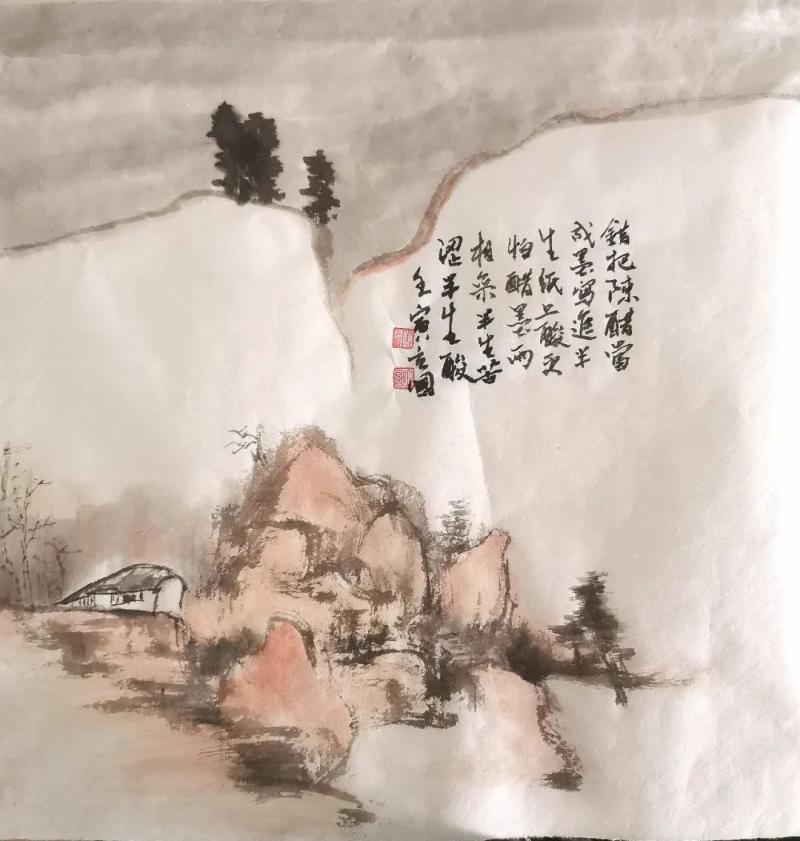 錯把陳醋當
成墨寫進半
生紙上酸更
怕醋墨兩
相矣半生苦
澀半生酸
壬寅立國